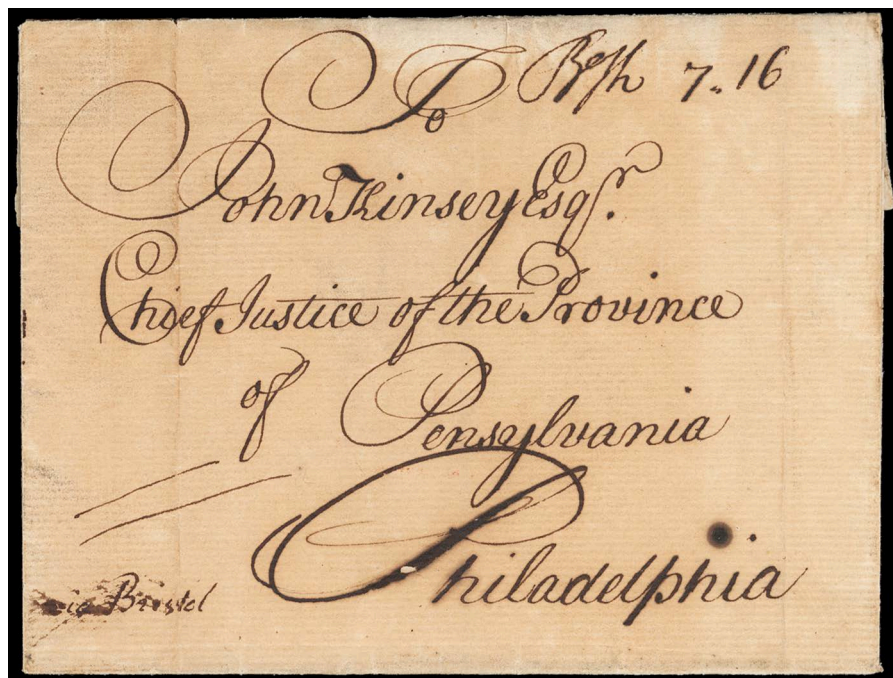 To
7.. 16
John Kinsey Esqr.
Chief Justice of the Province
of Pensylvania
Philadelphia
via Bristol